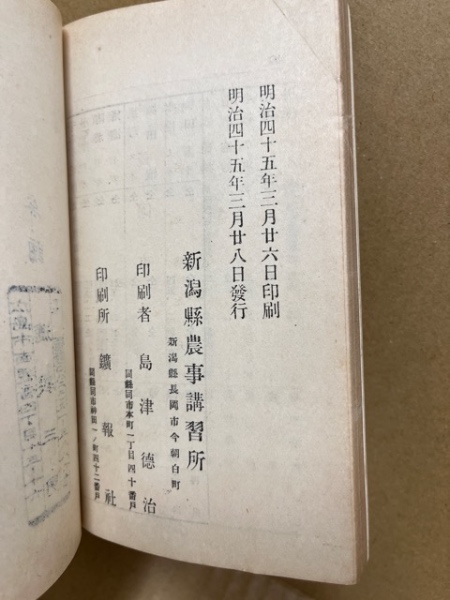 明治四十五年三月廿六日印刷
明治四十五年三月廿八日發行
新潟縣農事講習所
新潟縣長岡市今朝白町
印刷者 島津德治
同縣同市本町一丁目四十番戸
印刷所 鑛報社
同縣同市神田一ノ町四十二番戸